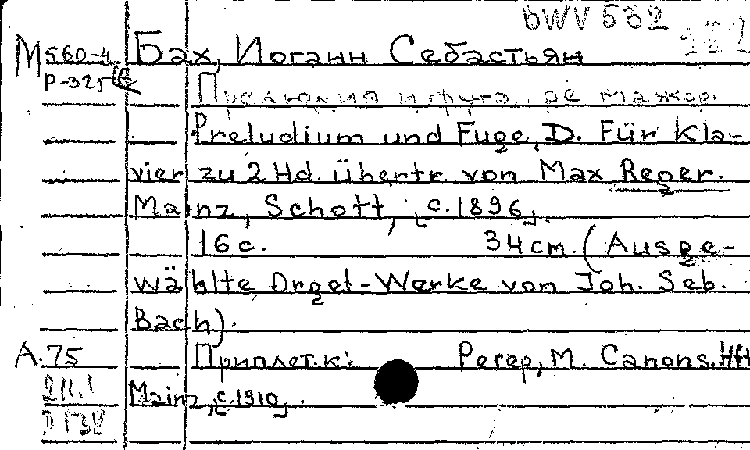 BWV 532
М 560-4 Бах, Иоганн Себастьян
Р-325
Прелюдия и фуга, ре мажор.
Preludium und Fuge, D. Für Kla-
vier zu 2 Hd. übertr. von Max Reger.
Mainz, Schott, [c. 1896].
16 с. 34 cm. (Ausge-
wählte Orgel-Werke von Joh. Seb.
Bach).
А. 75 Приплет. к: Регер, М. Canons.
Mainz, [c. 1910].